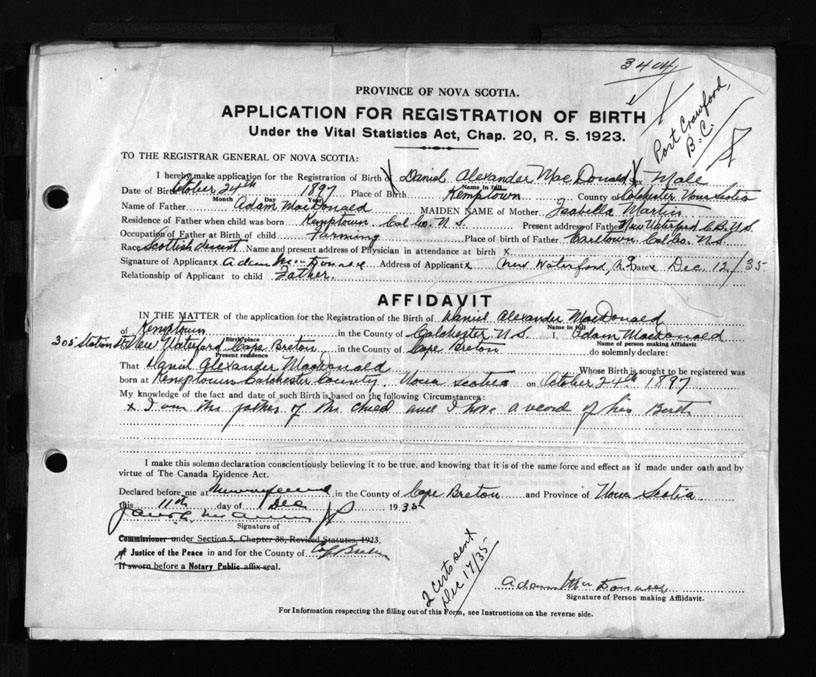 3404
PROVINCE OF NOVA SCOTIA.
APPLICATION FOR REGISTRATION OF BIRTH
Under the Vital Statistics Act, Chap. 20, R. S. 1923.
Port Crawford,
B. C.
TO THE REGISTRAR GENERAL OF NOVA SCOTIA:
I hereby make application for the Registration of Birth of Daniel Alexander MacDonald Sex Male
Name in full
Date of Birth October 24th 1897 Place of Birth Kemptown County of Colchester Nova Scotia
Month Day Year
Name of Father Adam MacDonald MAIDEN NAME of Mother Isabella Martin
Residence of Father when child was born Kemptown Col. Co. N. S. Present address of Father New Waterford C.B. N.S.
Occupation of Father at Birth of child Farming Place of birth of Father Earltown Col. Co. N.S.
Race Scottish descent Name and present address of Physician in attendance at birth x
Signature of Applicant x Adam Address of Applicant x New Waterford, Date x Dec. 12/35
Relationship of Applicant to child Father.
AFFIDAVIT
IN THE MATTER of the application for the Registration of the Birth of Daniel Alexander MacDonald
Name in full
of Kemptown in the County of Colchester N.S. I, Adam MacDonald
Birth place
Name of person making Affidavit
New Waterford Cape Breton in the County of Cape Breton do solemnly declare:
Present residence
That Daniel Alexander Macdonald Whose Birth is sought to be registered was
born at Kemptown Colchester County, Nova Scotia on October 24th 1897
My knowledge of the fact and date of such Birth is based on the following Circumstances:
x I am the father of the child and I have a record of his Birth
I make this solemn declaration conscientiously believing it to be true, and knowing that it is of the same force and effect as if made under oath and by
virtue of The Canada Evidence Act.
Declared before me at in the County of Cape Breton and Province of Nova Scotia
this 11th day of Dec 1935
JP
Signature of
Commissioner under Section 5, Chapter 38, Revised Statutes, 1923,
Justice of the Peace in and for the County of Cape Breton
If sworn before a Notary Public affix seal.
2 certs sent
Dec 17/35
Adam
Signature of Person making Affidavit.
For Information respecting the filling out of this Form, see Instructions on the reverse side.